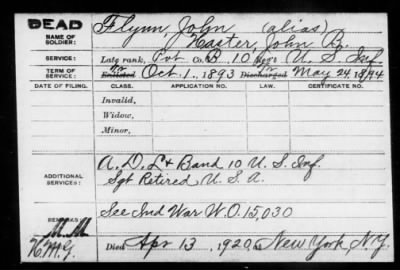 DEAD
NAME OF SOLDIER: Flynn, John (alias)
Haster, John R.
SERVICE: Late rank, Pvt Co. B, 10 Reg't U. S. Inf.
TERM OF SERVICE: Enlisted Oct. 1, 1893 Discharged May 24, 1894
DATE OF FILING. CLASS. APPLICATION NO. LAW. CERTIFICATE NO.
Invalid,
Widow,
Minor,
ADDITIONAL SERVICES: A, D, L + Band 10 U. S. Inf.
Sgt Retired U. S. A.
REMARKS: See Ind War W.O. 15,030
Died Apr 13, 1920, at New York, N.Y.